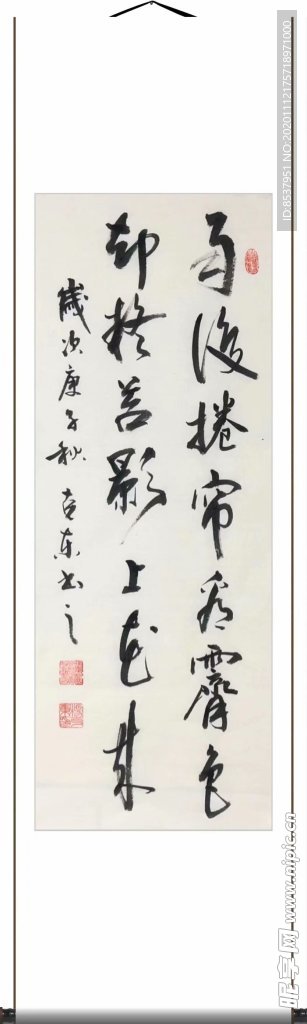 雨後捲帘看霽色
却移苔影上花來
歲次庚子秋 克東书之
ID:8537951 NO:20201112175718971000
昵享网 www.nipic.cn